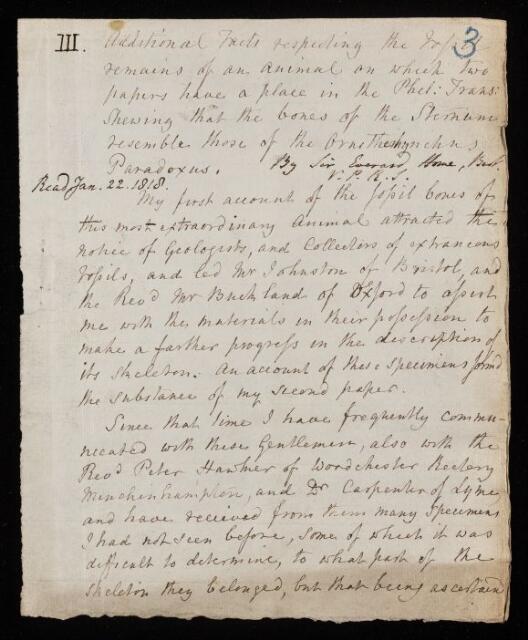 3
III. Additional Facts respecting the fossil
remains of an animal on which two
papers have a place in the Phil: Trans:
Shewing that the bones of the Sternum
resemble those of the Ornithorhynchus
Paradoxus. By Sir Everard Home, Bart.
V.P.R.S.
Read Jan. 22. 1818.
My first account of the fossil bones of
this most extraordinary animal attracted the
notice of Geologists, and Collectors of extraneous
fossils, and led Mr Johnston of Bristol, and
the Revd Mr Buckland of Oxford to assist
me with the materials in their possession to
make a farther progress in the description of
its skeleton. An account of these specimens formd
the substance of my second paper.
Since that time I have frequently commu-
nicated with these Gentlemen, also with the
Revd Peter Hawker of Woodchester Rectery
Minchenhampton, and Dr Carpenter of Lyme,
and have recieved from them many specimens
I had not seen before, some of which it was
difficult to determine, to what part of the
skeleton they belonged, but that being ascertaind